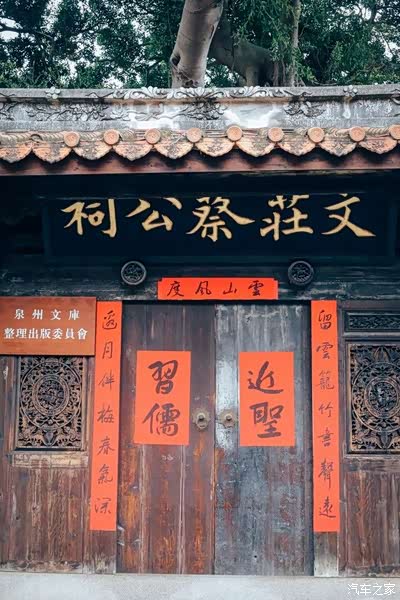 文莊蔡公祠
雲山風度
泉州文庫
整理出版委員會
留雲籠竹書聲遠
邀月伴梅春氣深
近聖
習儒
汽车之家